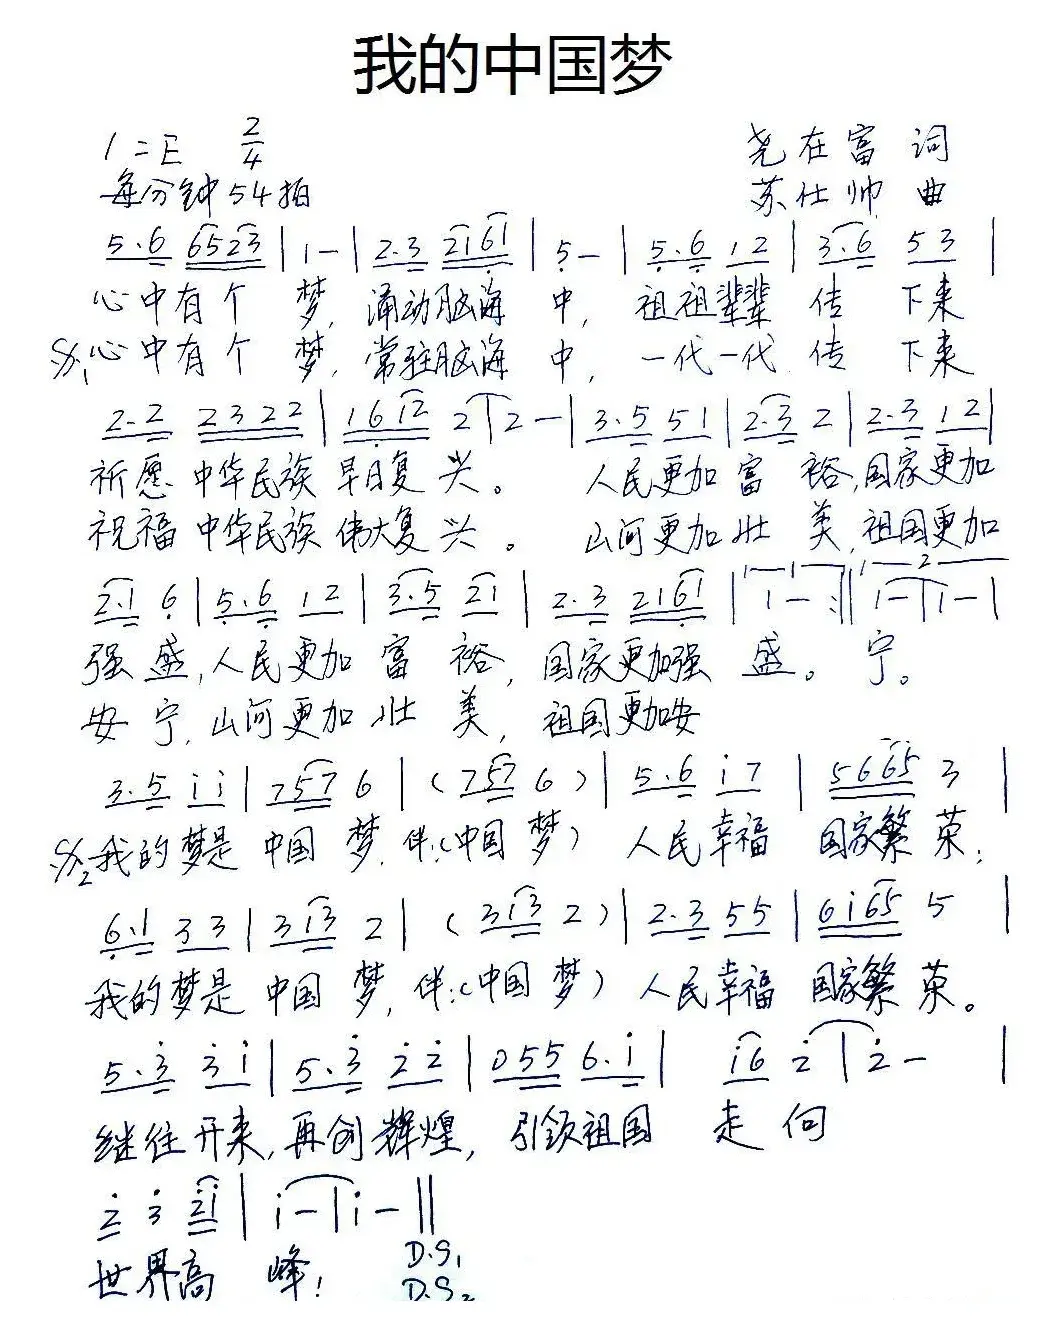 我的中国梦
1=E 2/4 尧在富 词
每分钟54拍 苏仕帅 曲
5.6 6523 | 1 - | 2.3 2161 | 5 - | 5.6 12 | 3.6 53 |
心中有个 梦, 涌动脑海 中, 祖祖辈辈 传 下来
𝄋1 心中有个 梦, 常驻脑海 中, 一代一代 传 下来
2.2 2322 | 1612 2 | 2 - | 3.5 51 | 2.3 2 | 2.3 12 |
祈愿 中华民族 早日复 兴。 人民更加 富 裕,国家更加
祝福 中华民族 伟大复 兴。 山河更加 壮 美,祖国更加
2.1 6 | 5.6 12 | 3.5 21 | 2.3 2161 | 1. 1 - :‖ 2. 1 - | 1 - |
强 盛,人民更加 富 裕, 国家更加强 盛。 宁。
安 宁,山河更加 壮 美, 祖国更加安
3.5 i̇i̇ | 757 6 | (757 6) | 5.6 i̇7 | 5665 3 |
𝄋2 我的梦是 中国 梦,伴:(中国 梦) 人民幸福 国家繁 荣;
6.1 33 | 313 2 | (313 2) | 2.3 55 | 6i̇65 5 |
我的梦是 中国 梦, 伴:(中国 梦) 人民幸福 国家繁 荣。
5.3̇ 3̇i̇ | 5.3̇ 2̇2̇ | 055 6.i̇ | i̇6 2̇ | 2̇ - |
继往开来,再创辉煌, 引领祖国 走 向
2̇ 3̇ 2̇i̇ | i̇ - | i̇ - ‖
世界高 峰! D.S1
D.S2